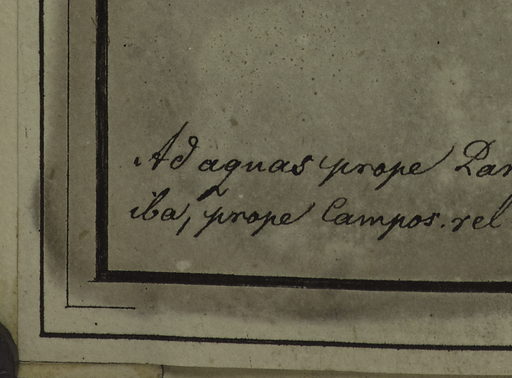 Ad aquas prope Par
iba, prope Campos. rel